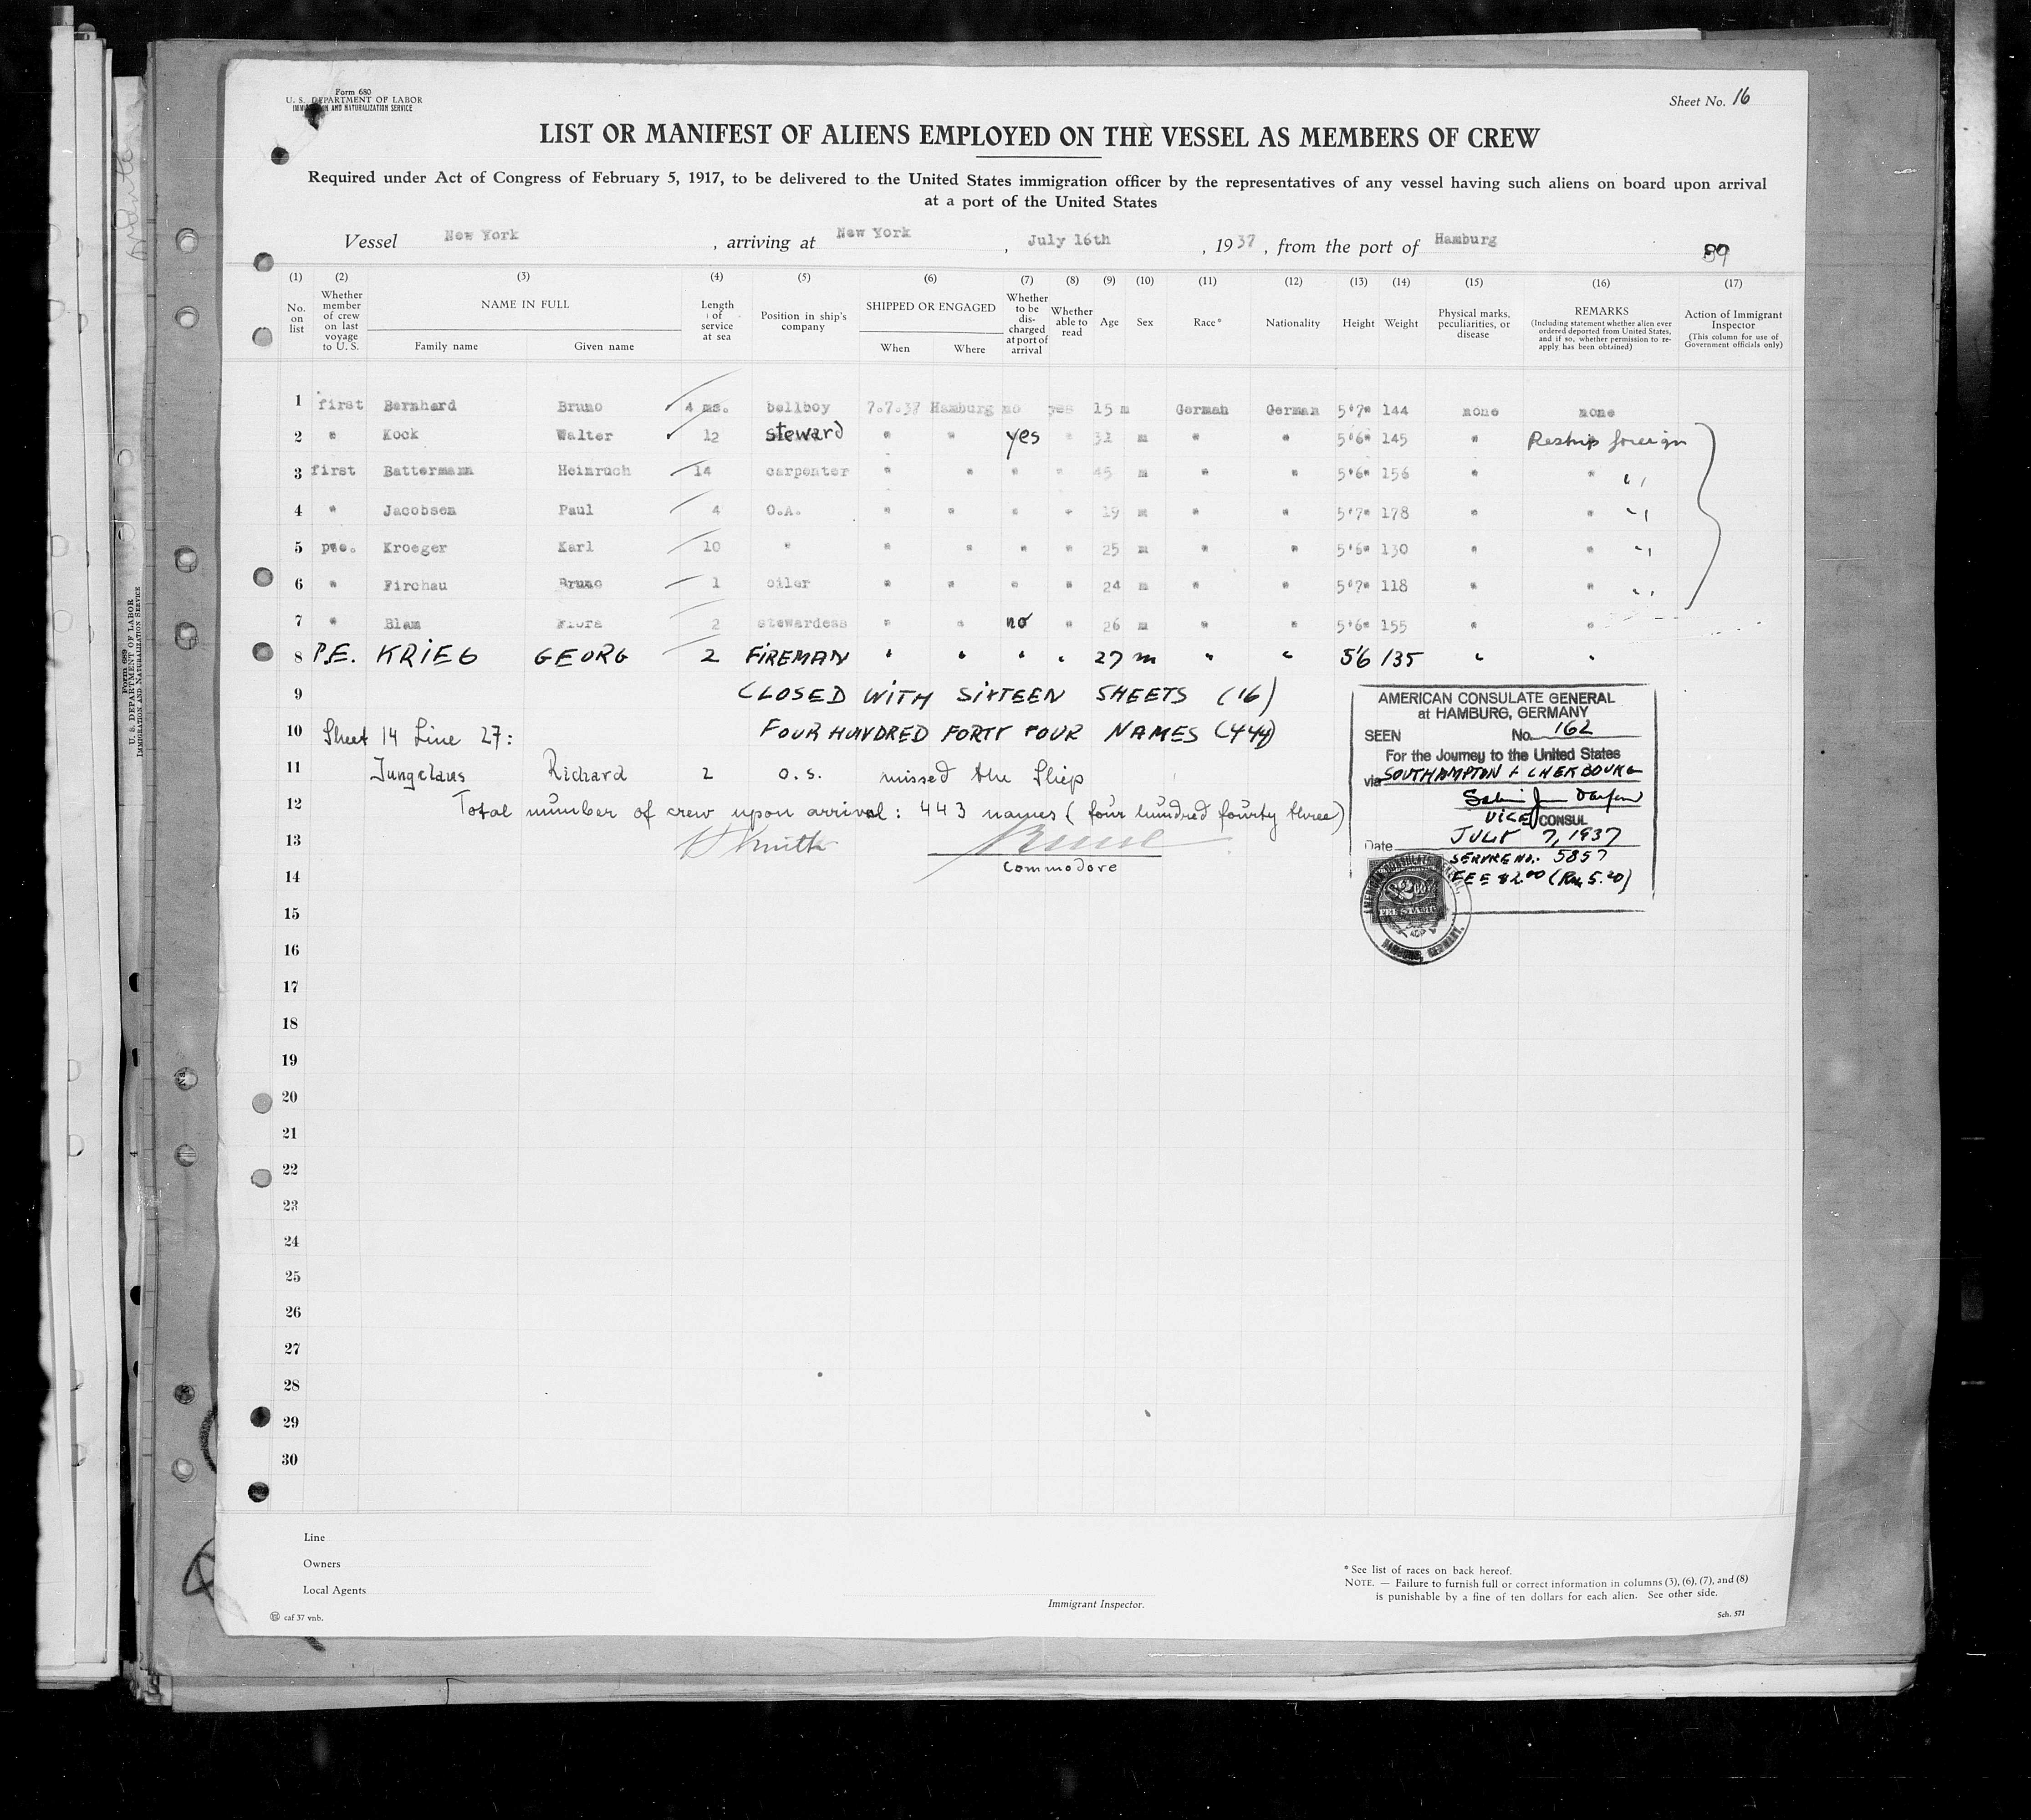 Form 680
U. S. DEPARTMENT OF LABOR
IMMIGRATION AND NATURALIZATION SERVICE
Sheet No. 16
LIST OR MANIFEST OF ALIENS EMPLOYED ON THE VESSEL AS MEMBERS OF CREW
Required under Act of Congress of February 5, 1917, to be delivered to the United States immigration officer by the representatives of any vessel having such aliens on board upon arrival
at a port of the United States
Vessel New York , arriving at New York , July 16th , 1937 , from the port of Hamburg
89
(1) (2) (3) (4) (5) (6) (7) (8) (9) (10) (11) (12) (13) (14) (15) (16) (17)
No. on list
Whether member of crew on last voyage to U. S.
NAME IN FULL
Family name Given name
Length of service at sea
Position in ship's company
SHIPPED OR ENGAGED
When Where
Whether to be discharged at port of arrival
Whether able to read
Age Sex Race* Nationality Height Weight
Physical marks, peculiarities, or disease
REMARKS
(Including statement whether alien ever ordered deported from United States, and if so, whether permission to reapply has been obtained)
Action of Immigrant Inspector
(This column for use of Government officials only)
1 first Bernhard Bruno 4 ms. bellboy 7.7.37 Hamburg no yes 15 m German German 5'7" 144 none none
2 " Kock Walter 12 steward " " yes " 31 m " " 5'6" 145 " Reship foreign
3 first Battermann Heinruch 14 carpenter " " " " 45 m " " 5'6" 156 " " "
4 " Jacobsen Paul 4 O.A. " " " " 19 m " " 5'7" 178 " " "
5 p.e. Kroeger Karl 10 " " " " " 25 m " " 5'6" 130 " " "
6 " Firchau Bruno 1 oiler " " " " 24 m " " 5'7" 118 " " "
7 " Blam Flora 2 stewardess " " no " 26 m " " 5'6" 155 " "
8 P.E. KRIEG GEORG 2 FIREMAN " " " " 27 m " " 5'6 135 " "
9 CLOSED WITH SIXTEEN SHEETS (16)
10 FOUR HUNDRED FORTY FOUR NAMES (444)
Sheet 14 Line 27:
11 Jungclaus Richard 2 o.s. missed the Ship
12 Total number of crew upon arrival: 443 names (four hundred fourty three)
13
Commodore
14
15
16
17
18
19
20
21
22
23
24
25
26
27
28
29
30
AMERICAN CONSULATE GENERAL
at HAMBURG, GERMANY
SEEN No. 162
For the Journey to the United States
via SOUTHAMPTON + CHERBOURG
VICE CONSUL
Date JULY 7, 1937
SERVICE NO. 5857
FEE $2.00 (Rm 5.20)
Line
Owners
Local Agents
Immigrant Inspector.
* See list of races on back hereof.
NOTE. — Failure to furnish full or correct information in columns (3), (6), (7), and (8)
is punishable by a fine of ten dollars for each alien. See other side.
caf 37 vnb.
Sch. 571
Form 689
U. S. DEPARTMENT OF LABOR
IMMIGRATION AND NATURALIZATION SERVICE